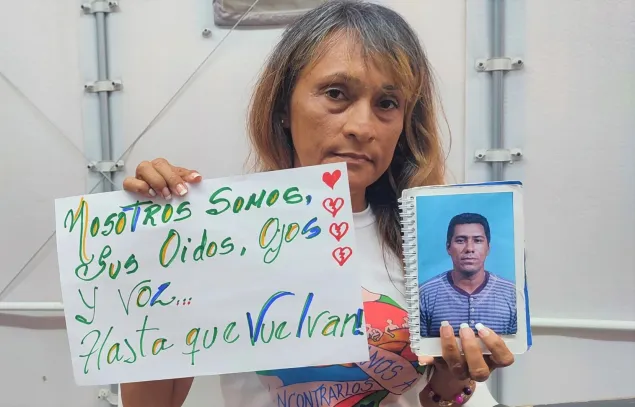 Nosotros Somos,
Sus Oidos, Ojos
y voz...
Hasta que Vuelvan!
NOS A
NCONTRARLOS